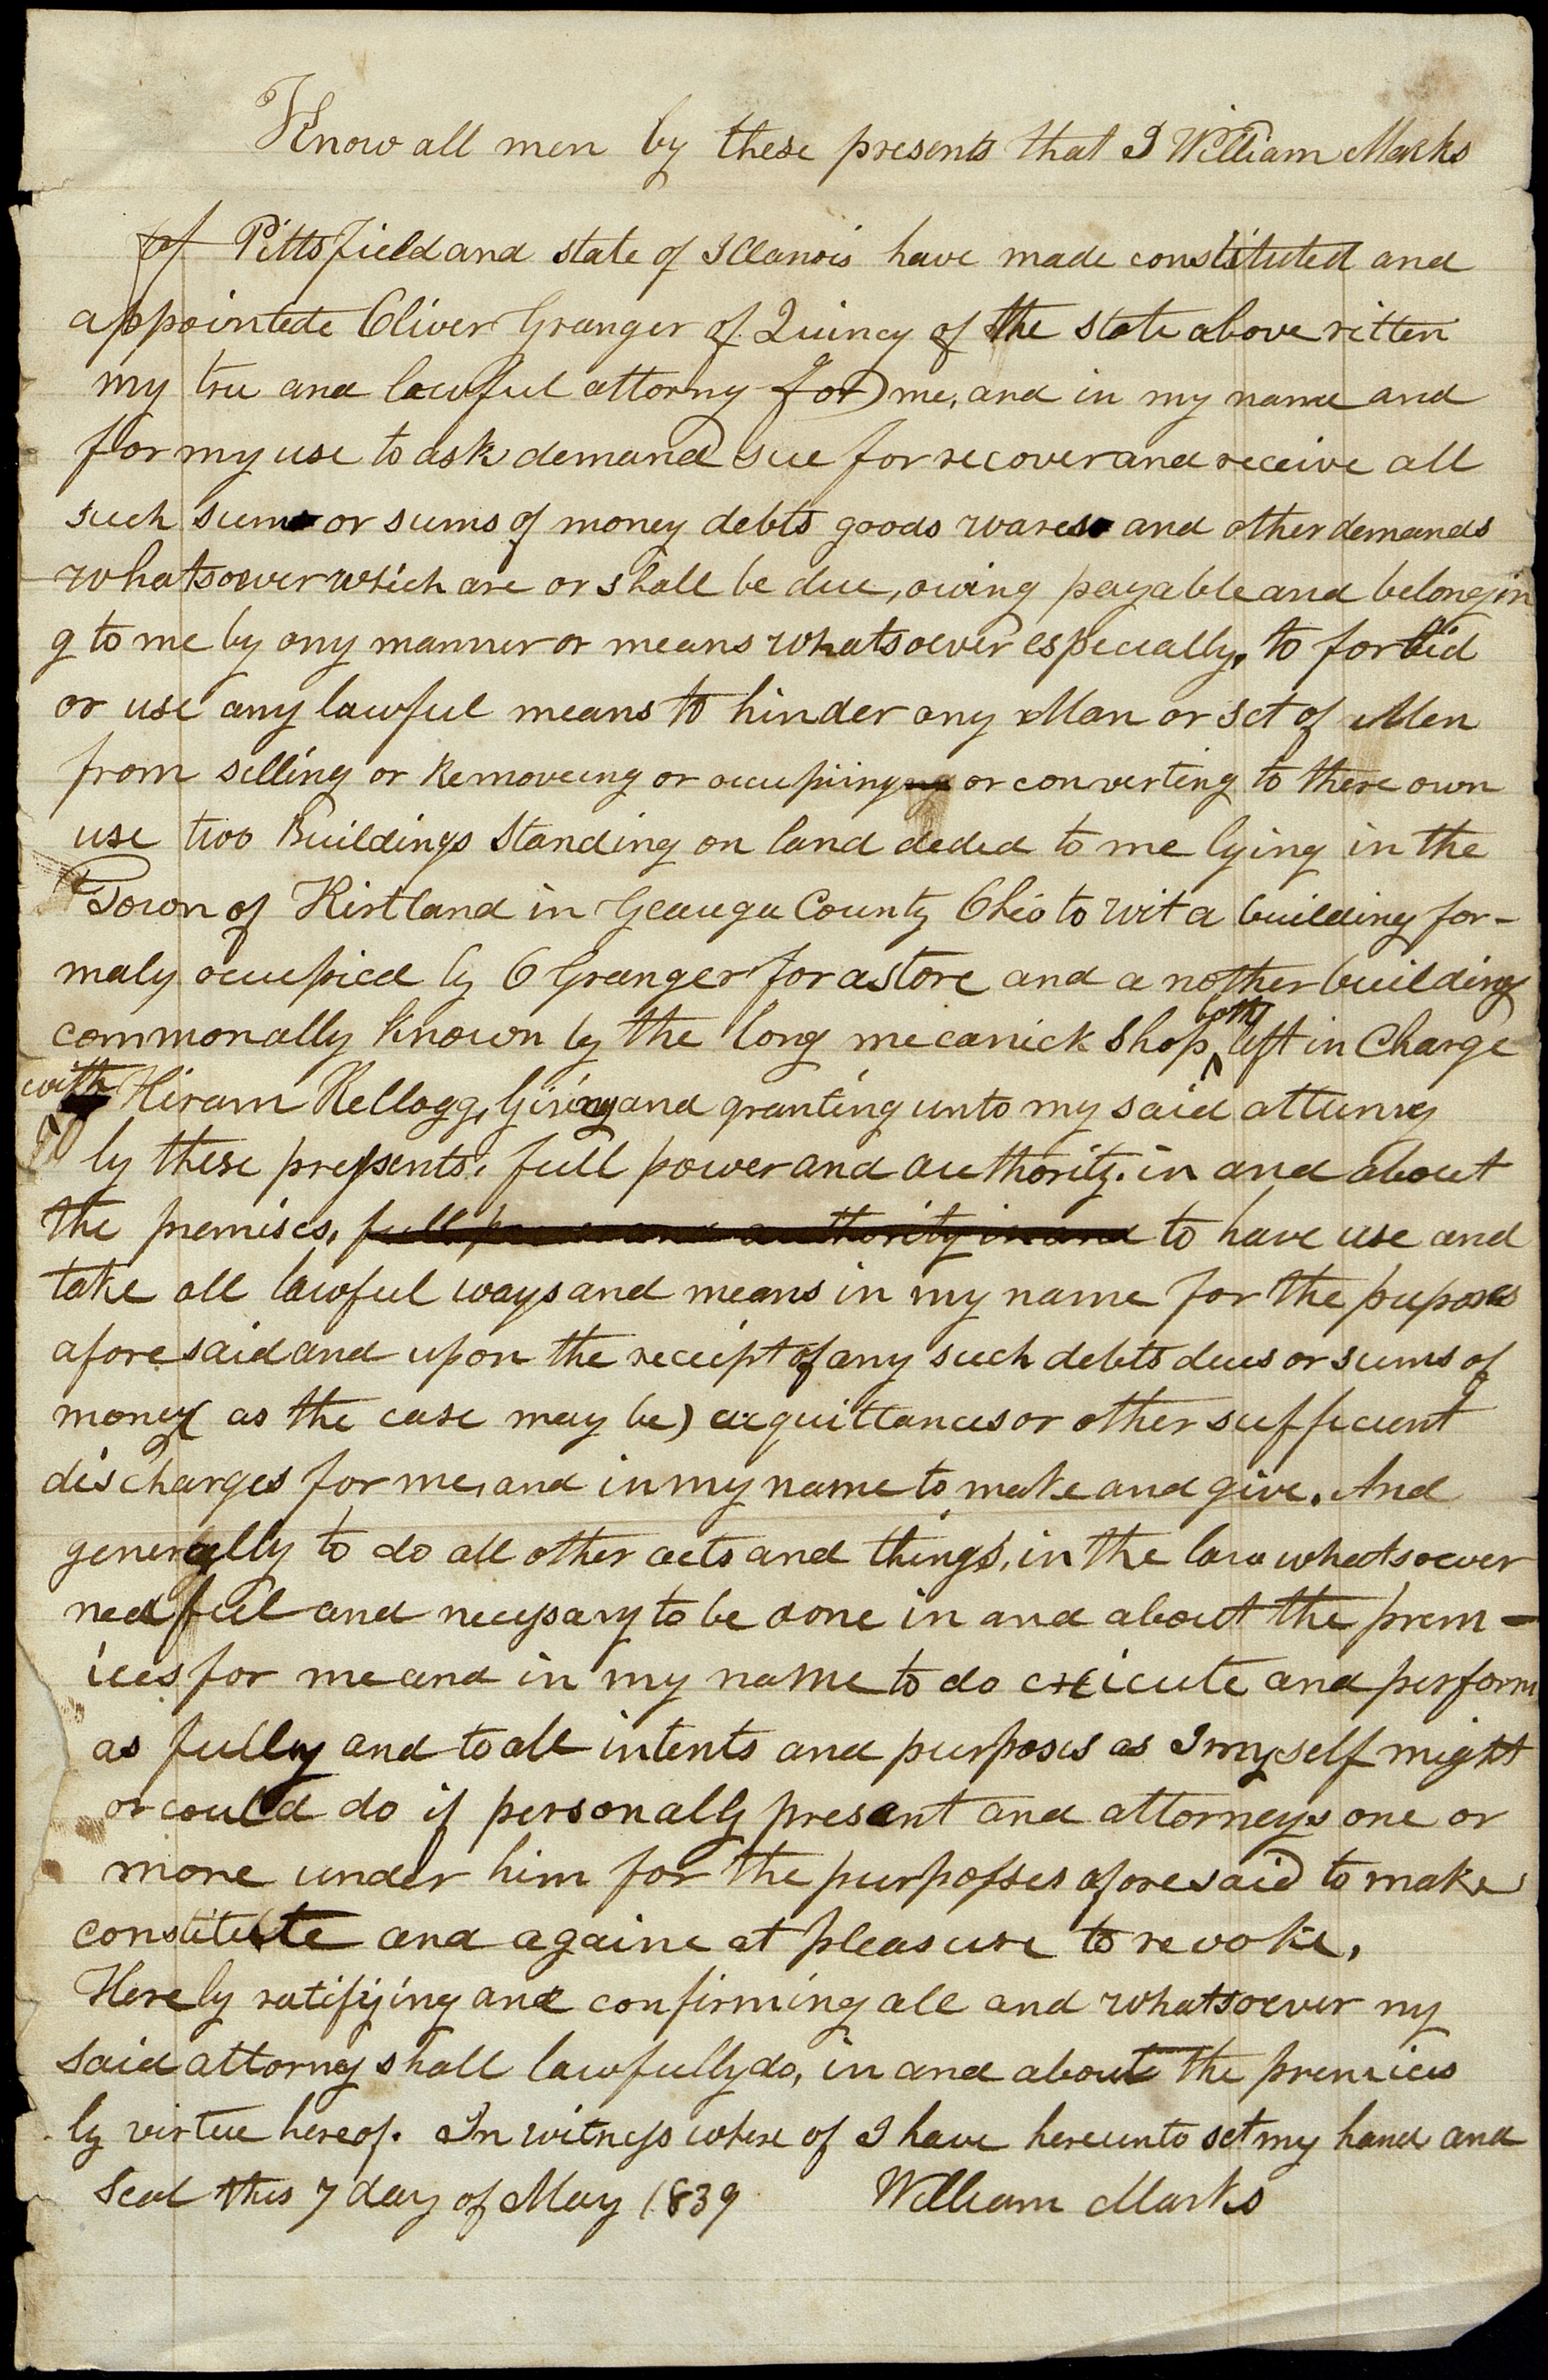 Know all men by these presents that I William Marks
of Pittsfield and state of Illanois have made constituted and
appointede Oliver Granger of Quincy of the state above ritten
my tru and lawful attorny for me, and in my name and
for my use to ask demand sue for recover and receive all
such sums or sums of money debts goods wares and other demands
whatsoever which are or shall be due, owing payable and belongin
g to me by any manner or means whatsoever especially, to forbid
or use any lawful means to hinder any Man or set of Men
from selling or Removeing or occupiing or converting to there own
use two Buildings Standing on land deded to me lying in the
Town of Kirtland in Geauga County Ohio to wit a building for-
maly occupied by O Granger for a store and a nother building
commonally known by the long mecanick shop, both left in Charge
with Hiram Kellogg, Giving and granting unto my said atturny
by these presents, full power and authority, in and about
the premises, full power and authority in and to have use and
take all lawful ways and means in my name for the puposes
afore said and upon the receipt of any such debts dues or sums of
money (as the case may be) acquittances or other sufficient
discharges for me, and in my name to make and give. And
generally to do all other acts and things, in the law whatsoever
nedful and necessary to be done in and about the prem-
ices for me and in my name to do exicute and perform
as fully and to all intents and purposes as I myself might
or could do if personally present and attorneys one or
more under him for the purposses afore said to make
constitute and againe at pleasure to revoke,
Hereby ratifying and confirming all and whatsoever my
said attorney shall lawfully do, in and about the premices
by virtue hereof. In witness where of I have hereunto set my hand and
Seal this 7 day of May 1839 William Marks